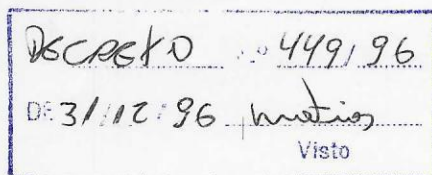 DECRETO nº 449/96
DE 31/12/96
Visto